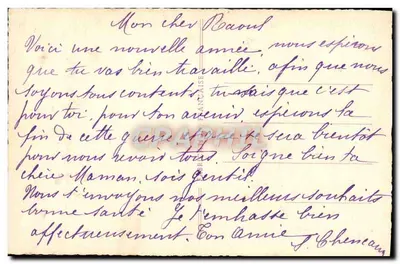 Mon cher Raoul
Voici une nouvelle année, nous espérons
que tu vas bien travailler, afin que nous
soyons tous contents, tu sais que c'est
pour toi, pour ton avenir, espérons la
fin de cette guerre et que ce sera bientôt
pour nous revoir tous. Soigne bien ta
chère Maman, sois gentil.
Nous t'envoyons nos meilleurs souhaits
bonne santé. Je t'embrasse bien
affectueusement. Ton Amie